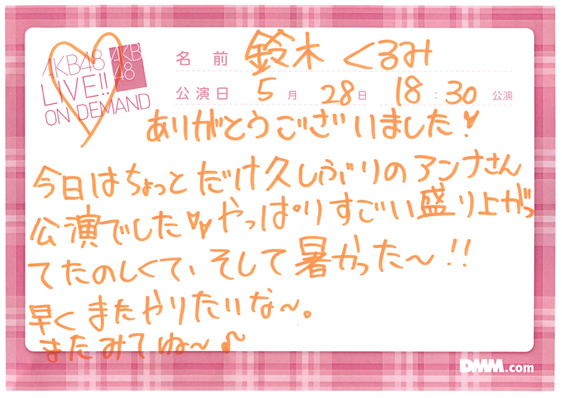 AKB48
LIVE!!
ON DEMAND
AKB
48
名前 鈴木くるみ
公演日 5月28日 18:30 公演
ありがとうございました!
今日はちょっとだけ久しぶりのアンナさん
公演でした♡♡やっぱりすごい盛り上がっ
てたのしくて、そして暑かった〜!!
早くまたやりたいな〜。
またみてね〜♪
DMM.com